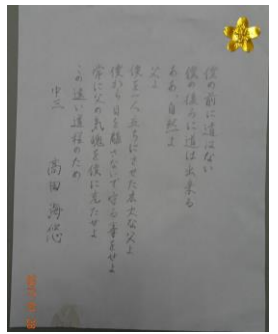 僕の前に道はない
僕の後ろに道は出来る
ああ、自然よ
父よ
僕を一人立ちにさせた広大な父よ
僕から目を離さないで守る事をせよ
常に父の気魄を僕に充たせよ
この遠い道程のため
中三
高田